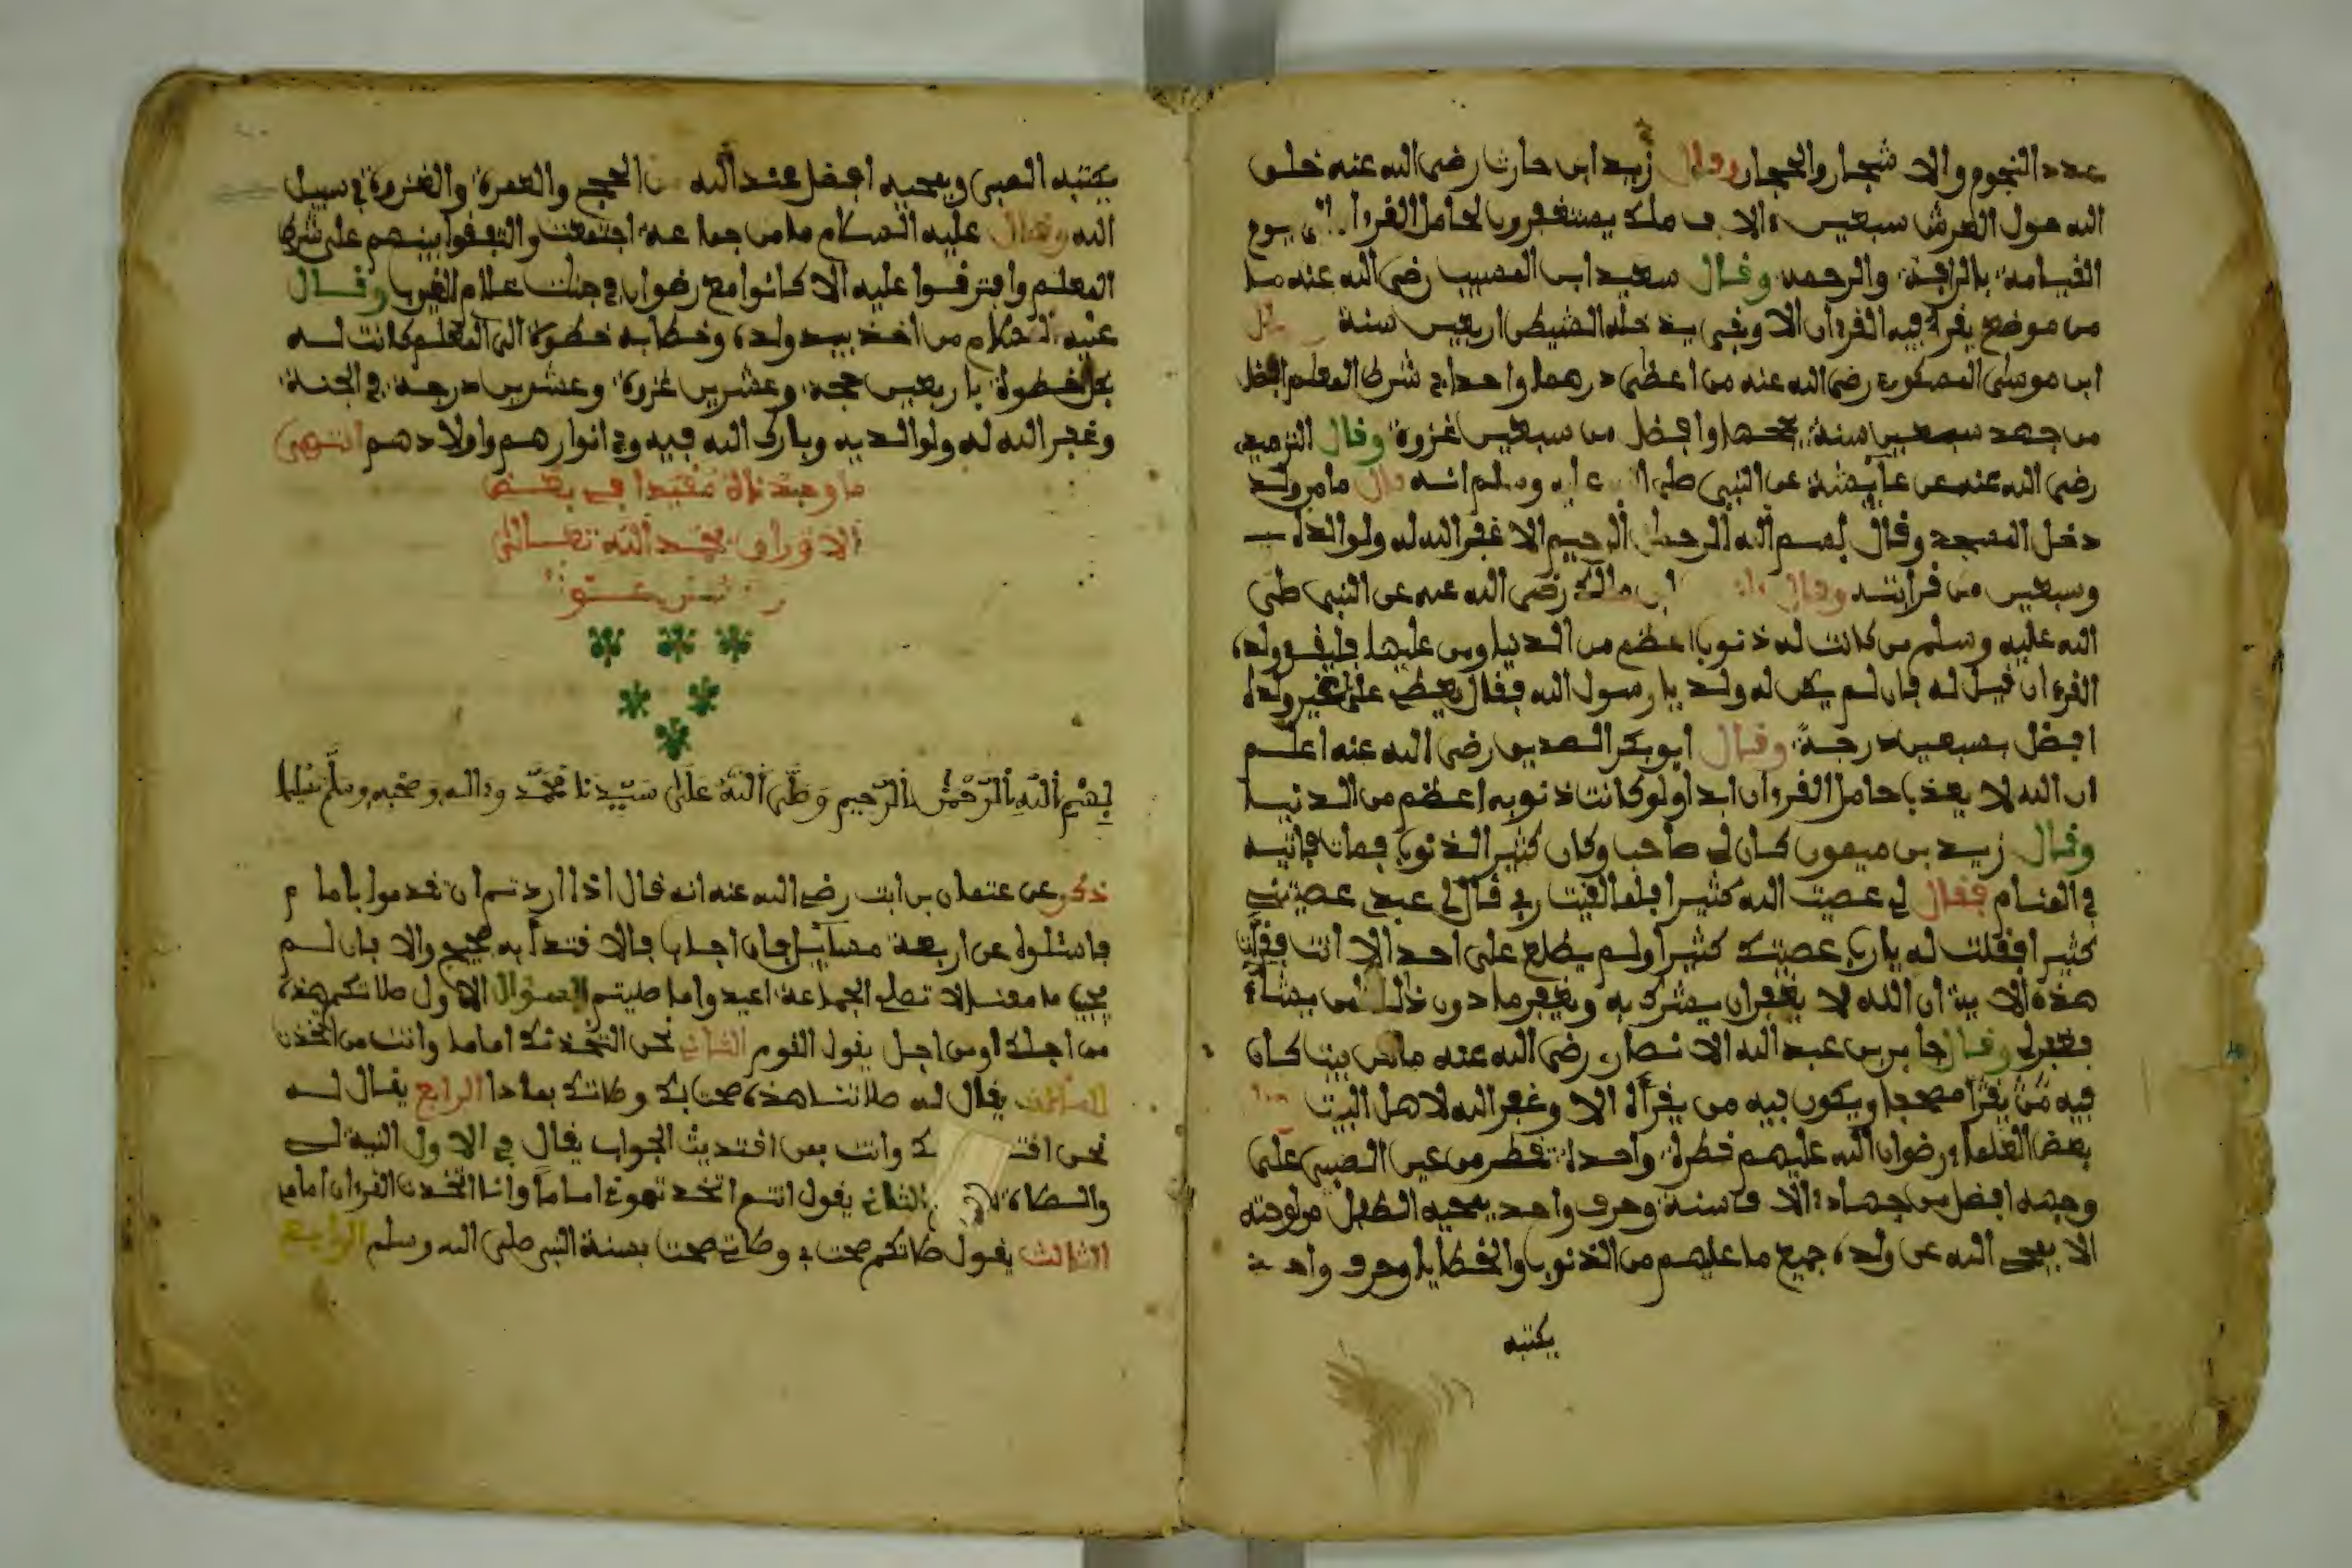 عدد النجوم والاشجار والحجار وقال زيد ابن حارث رضى الله عنه خلق
الله حول العرش سبعين ءالاف ملك يستغفرون لحامل القرءان الى يوم
القيامة بالرافة والرحمة وقال سعيد ابن المسيب رضى الله عنه ما
من موضع يقرا فيه القرءان الا وبقى يدخله الشيطن اربعين سنة
ابن موسى رضى الله عنه من اعطى درهما واحدا في شرط المعلم افضل
من جهد سبعين سنة وافضل من سبعين غزوة وقال الترميدي
رضى الله عنه عن عايشة عن النبي صلى الله عليه وسلم انه قال ما من ولد
دخل المسجد وقال بسم الله الرحمن الرحيم الا غفر الله له ولوالديه
وسبعين من قرابته وقال ابن مالك رضى الله عنه عن النبي صلى
الله عليه وسلم من كانت له ذنوب اعظم من الدنيا ومن عليها فليقر ولده
القرءان قيل له فان لم يكن له ولد يا رسول الله فقال يعطى على غير ولده
افضل بسبعين درجة وقال ابو بكر الصديق رضى الله عنه اعلم
ان الله لا يعذب حامل القرءان ابدا ولو كانت ذنوبه اعظم من الدنيا
وقال زيد بن ميمون كان لي صاحب وكان كثير الذنوب فمات فاتيه
في المنام فقال لي عصيت الله كثيرا فلما لقيت ربي قال لي عبدي عصيتني
كثيرا فقلت له يا رب عصيتك كثيرا ولم يطلع على احد الا انت فقرات
هذه الاية ان الله لا يغفر ان يشرك به ويغفر ما دون ذلك لمن يشاء
فغفر لي وقال جابر بن عبد الله الانصاري رضى الله عنه ما من بيت كان
فيه من يقرا مصحفا ويكون فيه من يقراه الا وغفر الله لاهل البيت
بعض العلماء رضوان الله عليهم قطرة واحدة تقطر من عين الصبي على
وجهه افضل من جهاد الاف سنة وحرف واحد يمحيه الطفل من لوحته
الا يمحى الله عن ولده جميع ما عليهم من الذنوب والخطايا وحرف واحد
يكتبه
يكتبه الصبي ويمحيه افضل عند الله من الحج والعمرة والغزوة في سبيل
الله وقال عليه السلام ما من جماعة اجتمعت واتفقوا بينهم على شرط
المعلم وافترقوا عليه الا كانوا مع رضوان في جنات علام الغيوب وقال
عليه السلام من اخذ بيد ولده وخطا به خطوة الى المعلم كانت له
بكل خطوة باربعين حجة وعشرين غزوة وعشرين درجة في الجنة
وغفر الله له ولوالديه وبارك الله فيه وفي انوارهم واولادهم انتهى
ما وجدناه مقيدا في بعض
الاوراق بحمد الله تعالى
بسم الله الرحمن الرحيم وصلى الله على سيدنا محمد وءاله وصحبه وسلم تسليما
ذكر عن عثمان بن ثابت رضي الله عنه انه قال اذا اردتم ان تقدموا باماما
فاسئلوه عن اربعة مسايل فان اجاب فالاقتدا به صحيح والا فان لم
يجب ما معنا لا تصلح الجماعة اعيدوا ما صليتم السؤال الاول صلاتكم هذه
من اجلك او من اجل يقول القوم الثاني نحن اتخذناك اماما وانت من اتخذت
الثالث يقال له صلاتنا هذه صحت بك وصلاتك بماذا الرابع يقال له
نحن اقتدينا بك وانت بمن اقتديت الجواب يقال في الاول النية لي
والصلاة الثاني يقول انتم اتخذتموني اماما وانا اتخذت القرءان امامي
الثالث يقول صلاتكم صحت بي وصلاتي صحت بسنة النبي صلى الله وسلم الرابع